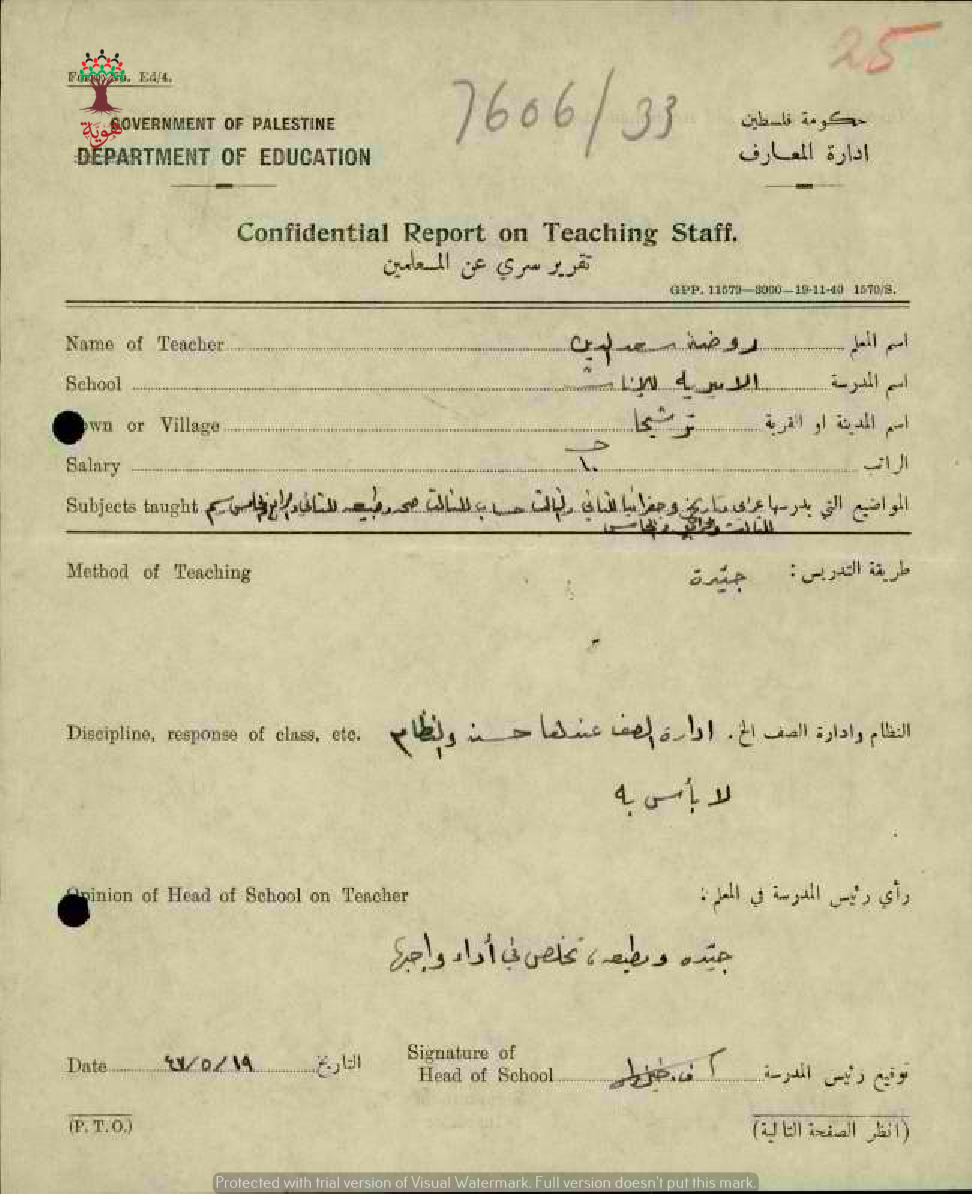 25
Form No. Ed/4.
هوية
7606/33
GOVERNMENT OF PALESTINE
حكومة فلسطين
DEPARTMENT OF EDUCATION
ادارة المعارف
Confidential Report on Teaching Staff.
تقرير سري عن المعلمين
GPP. 11579—3000—19-11-40 1570/S.
Name of Teacher روضة سعد الدين اسم المعلم
School الاميريه للاناث اسم المدرسة
Town or Village ترشيحا اسم المدينة او القرية
Salary الراتب
Subjects taught المواضيع التي يدرسها عربي وتاريخ وجغرافيا للثاني والثالث حساب للثالث صحه وطبيعه للثاني والرابع والخامس رسم
للثالث والرابع والخامس
Method of Teaching طريقة التدريس : جيّدة
Discipline, response of class, etc. النظام وادارة الصف الخ . ادارة الصف عندها حسنه والنظام
لا بأس به
Opinion of Head of School on Teacher رأي رئيس المدرسة في المعلم :
جيّده ومطيعه ، تخلص في أداء واجبها
Date ٤٧/٥/١٩ التاريخ
Signature of
Head of School توقيع رئيس المدرسة
(P. T. O.) (انظر الصفحة التالية)
Protected with trial version of Visual Watermark. Full version doesn't put this mark.